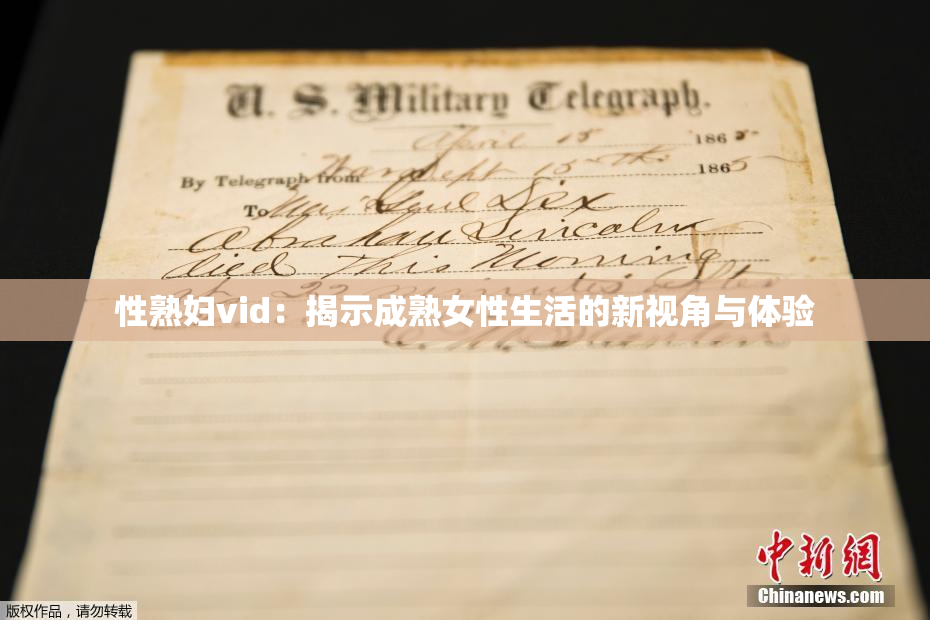 U. S. Military Telegraph.
April 15 1865
By Telegraph from War Dept 15th 1865
To Maj Genl Dix
Abraham Lincoln
died This Morning
at 22 minutes after
性熟妇vid：揭示成熟女性生活的新视角与体验
E. M. Stanton
中新网
Chinanews.com
版权作品，请勿转载